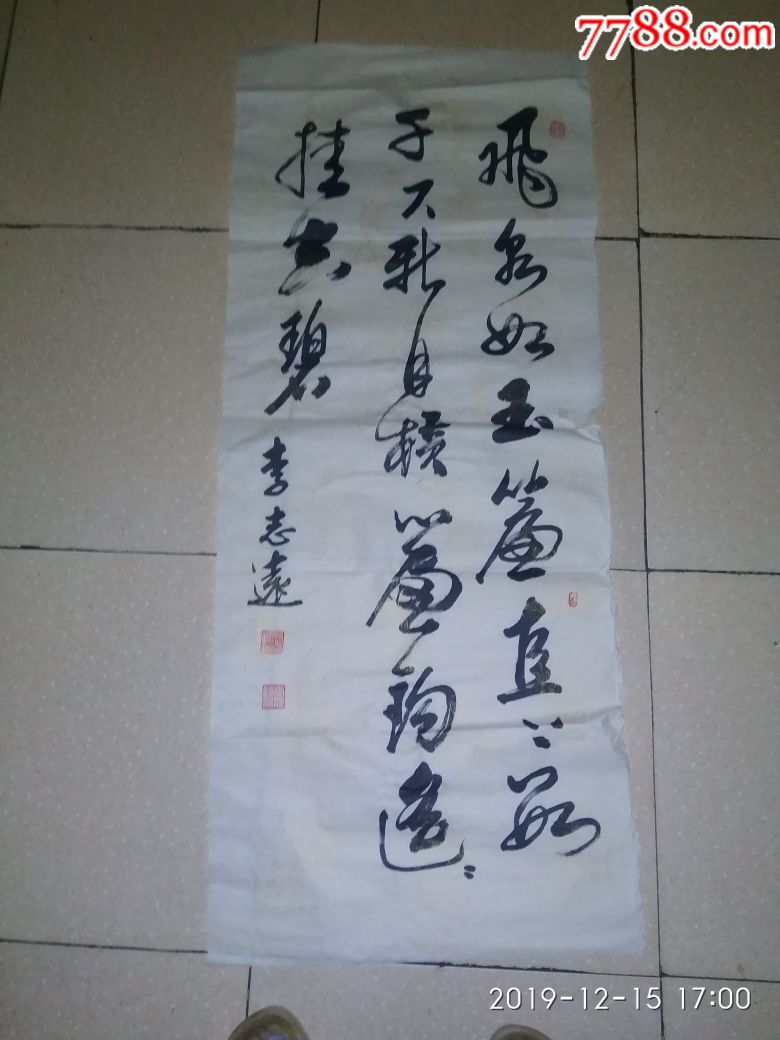 7788.com
飛泉如玉簾直下數
千尺新月橫簾鈎遙〻
挂空碧
李志遠
2019-12-15 17:00